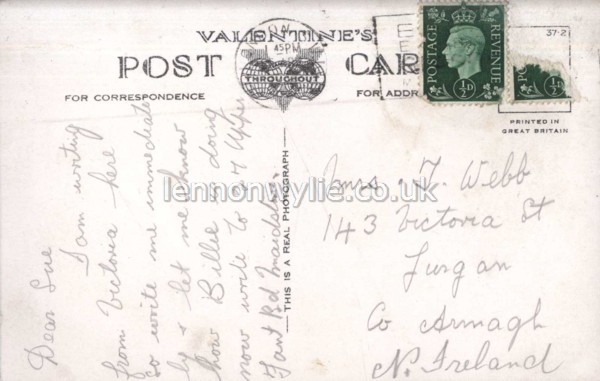 VALENTINE'S
POST CARD
THROUGHOUT
FOR CORRESPONDENCE
FOR ADDR
45PM
POSTAGE
REVENUE
½D
½D
37-2
PRINTED IN
GREAT BRITAIN
THIS IS A REAL PHOTOGRAPH
Dear Sue
I am writing
from Victoria here
so write me immediate
ly & let me know
how Billie doing
now write to 24 Upper
Fant Rd Maidstone
Mrs. T. Webb
143 Victoria St
Lurgan
Co Armagh
N. Ireland
lennonwylie.co.uk